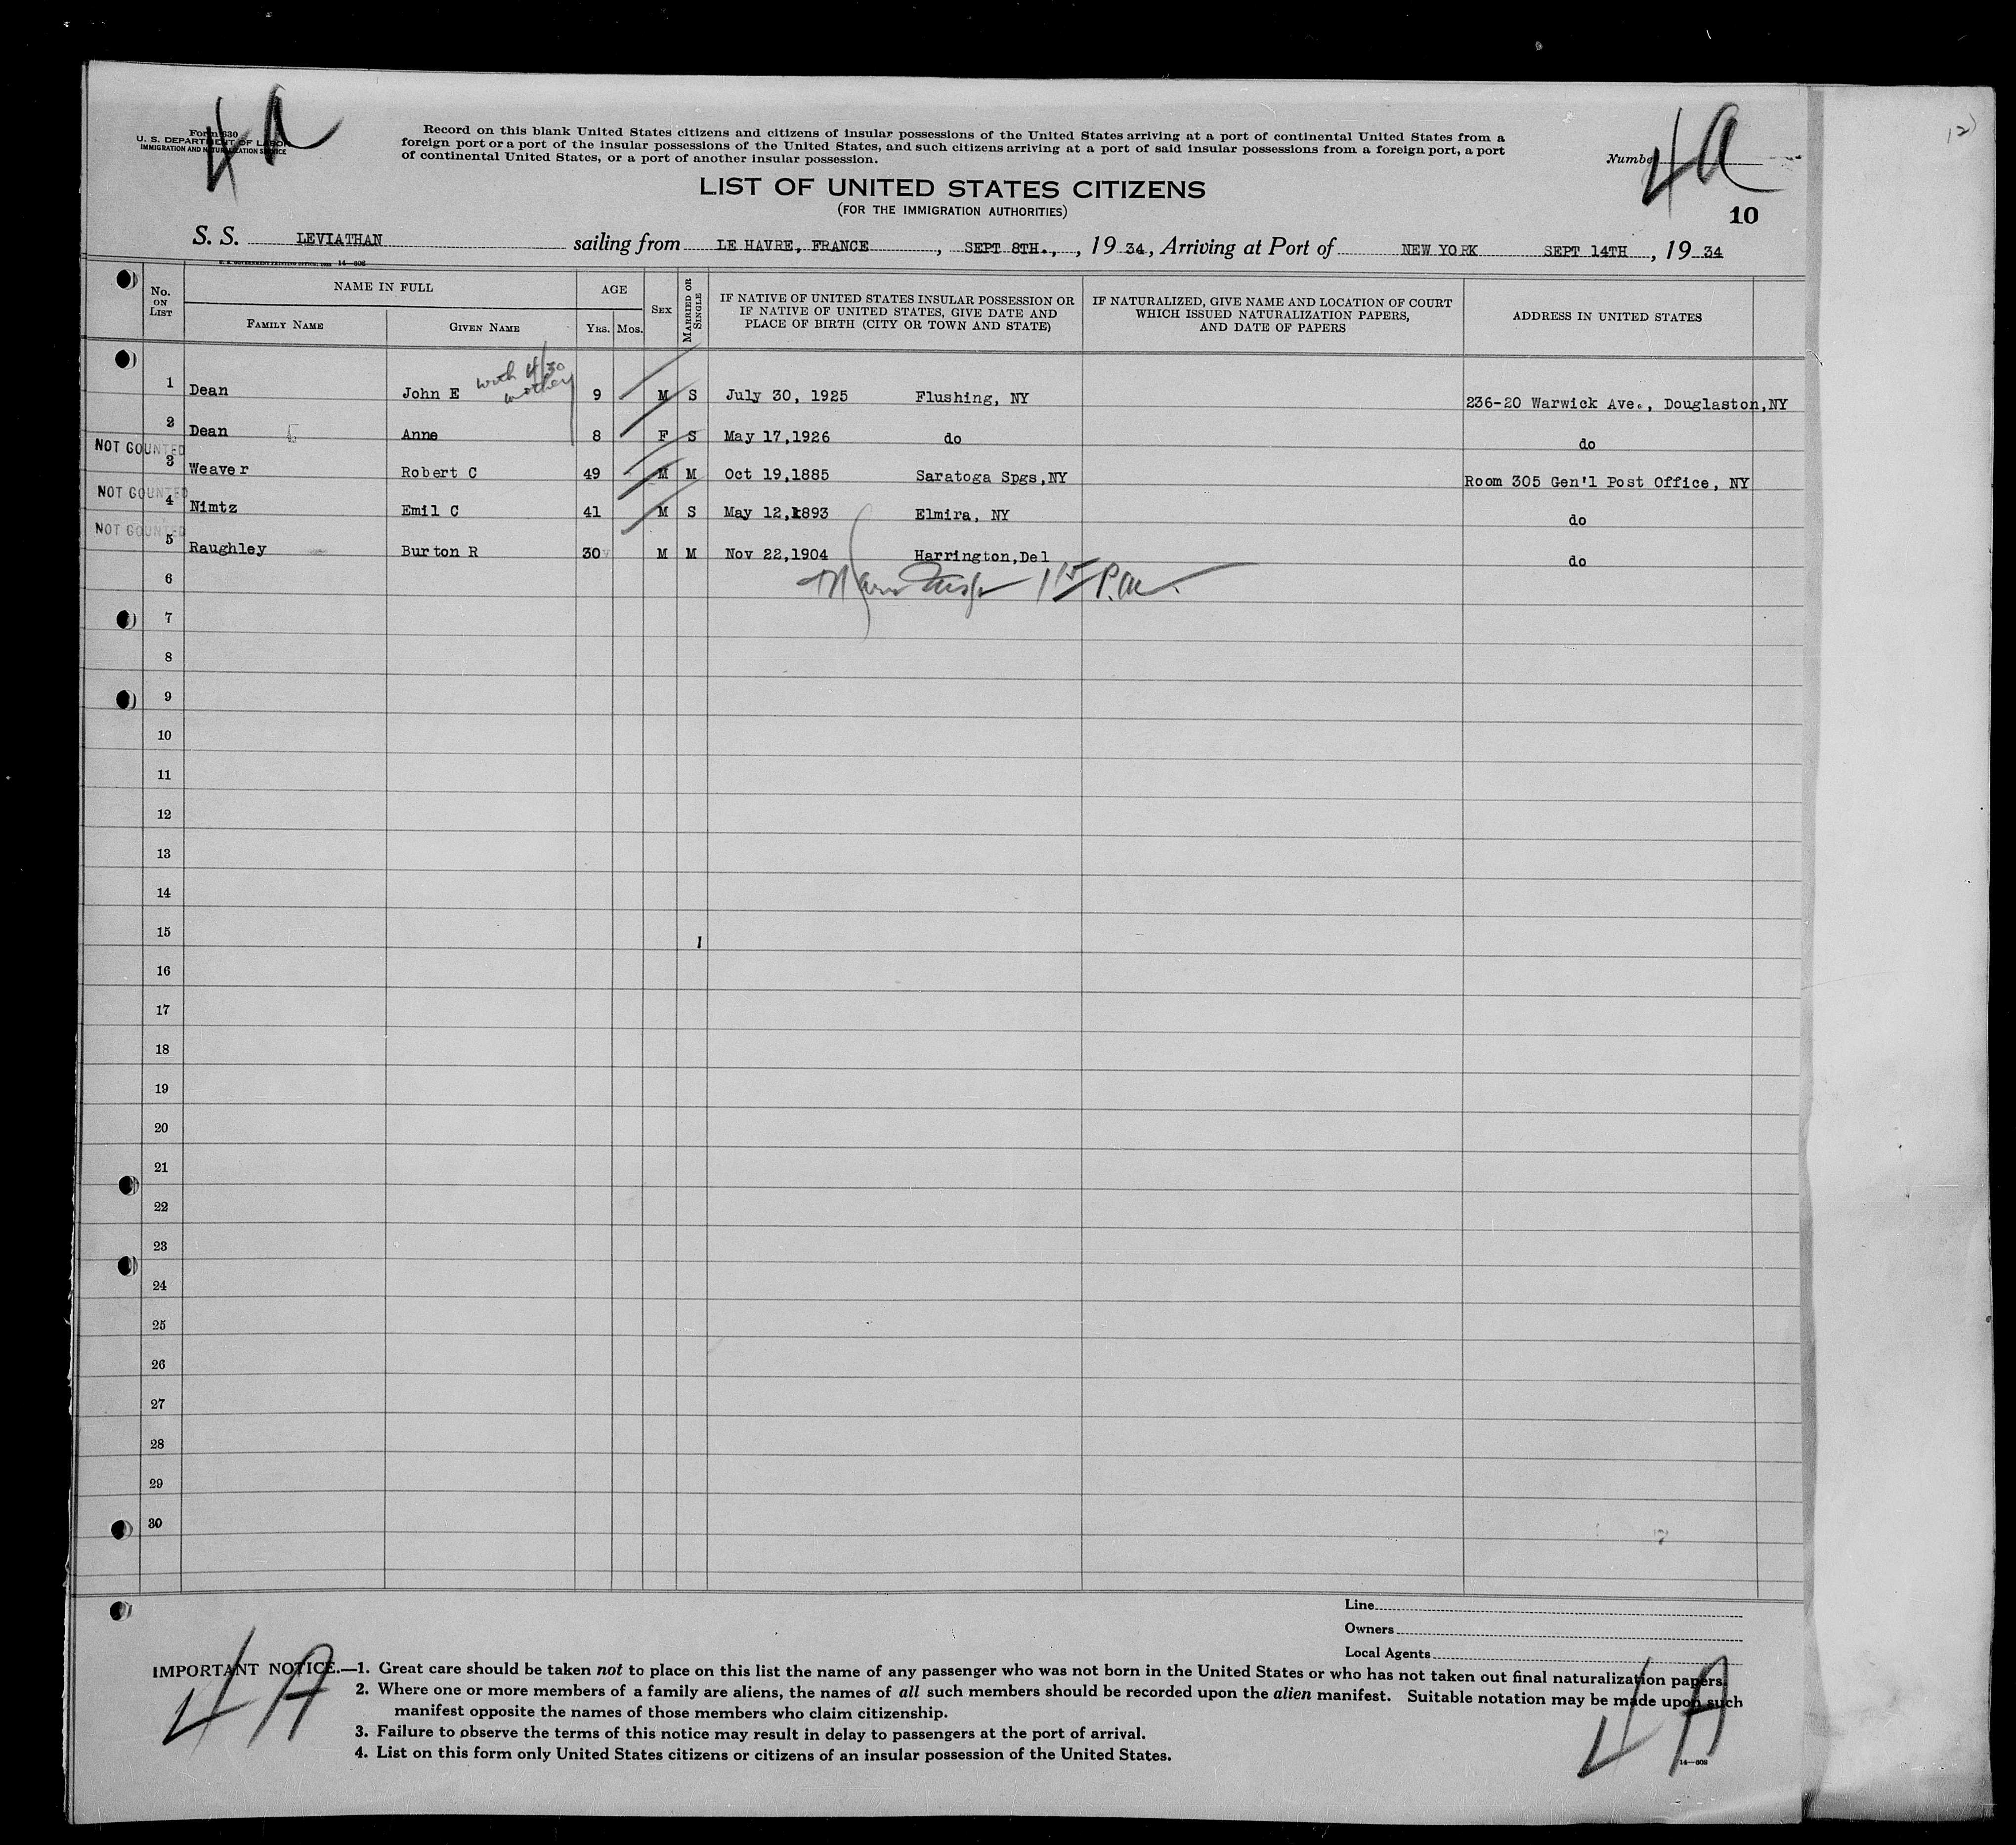 4A
Form 630
U. S. DEPARTMENT OF LABOR
IMMIGRATION AND NATURALIZATION SERVICE
Record on this blank United States citizens and citizens of insular possessions of the United States arriving at a port of continental United States from a
foreign port or a port of the insular possessions of the United States, and such citizens arriving at a port of said insular possessions from a foreign port, a port
of continental United States, or a port of another insular possession.
Number 4A
12)
LIST OF UNITED STATES CITIZENS
(FOR THE IMMIGRATION AUTHORITIES)
10
S. S. LEVIATHAN sailing from LE HAVRE, FRANCE, SEPT 8TH., 1934, Arriving at Port of NEW YORK SEPT 14TH, 1934
U. S. GOVERNMENT PRINTING OFFICE: 14—608
No. ON LIST
NAME IN FULL
FAMILY NAME GIVEN NAME
AGE
YRS. MOS.
SEX
MARRIED OR SINGLE
IF NATIVE OF UNITED STATES INSULAR POSSESSION OR
IF NATIVE OF UNITED STATES, GIVE DATE AND
PLACE OF BIRTH (CITY OR TOWN AND STATE)
IF NATURALIZED, GIVE NAME AND LOCATION OF COURT
WHICH ISSUED NATURALIZATION PAPERS,
AND DATE OF PAPERS
ADDRESS IN UNITED STATES
with 4/30
mother
1 Dean John E 9 M S July 30, 1925 Flushing, NY 236-20 Warwick Ave., Douglaston,NY
2 Dean Anne 8 F S May 17,1926 do do
NOT COUNTED
3 Weaver Robert C 49 M M Oct 19,1885 Saratoga Spgs,NY Room 305 Gen'l Post Office, NY
NOT COUNTED
4 Nimtz Emil C 41 M S May 12,1893 Elmira, NY do
NOT COUNTED
5 Raughley Burton R 30 M M Nov 22,1904 Harrington,Del do
6
1 15 P.M.
7
8
9
10
11
12
13
14
15
16
17
18
19
20
21
22
23
24
25
26
27
28
29
30
Line
Owners
Local Agents
IMPORTANT NOTICE.—1. Great care should be taken not to place on this list the name of any passenger who was not born in the United States or who has not taken out final naturalization papers.
2. Where one or more members of a family are aliens, the names of all such members should be recorded upon the alien manifest. Suitable notation may be made upon such
manifest opposite the names of those members who claim citizenship.
3. Failure to observe the terms of this notice may result in delay to passengers at the port of arrival.
4. List on this form only United States citizens or citizens of an insular possession of the United States.
4A
4A
14—608